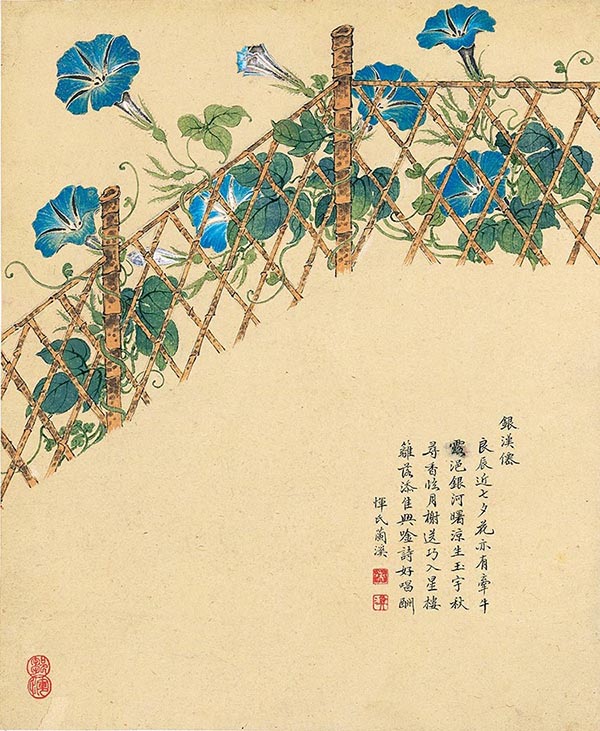 銀漢僊
良辰近七夕花亦有牽牛
露浥銀河曙涼生玉宇秋
尋香月榭送巧入星樓
籬落添佳興唫詩好唱酬
惲氏蘭溪